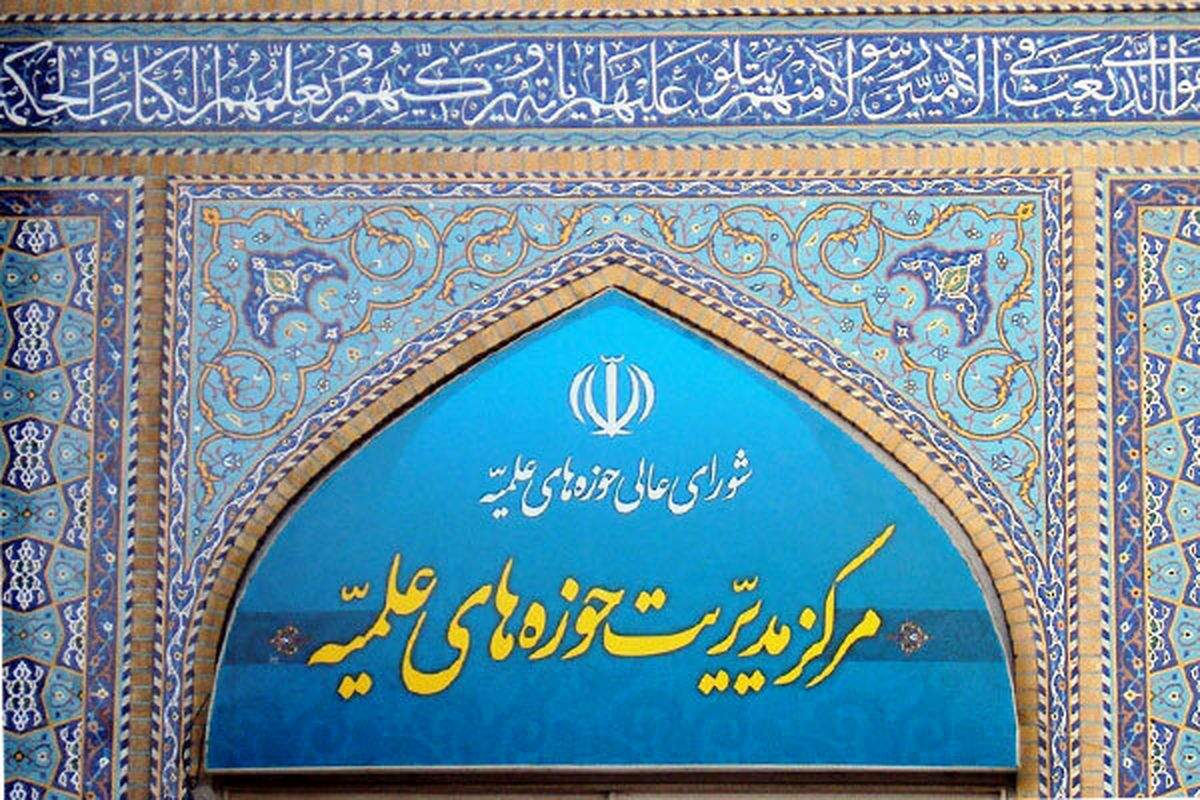 هوالذی بعث فی الأمیین رسولا منهم یتلو علیهم آیاته و یزکیهم و یعلمهم الکتاب والحکمة
شورای عالی حوزه‌های علمیّه
مرکز مدیریّت حوزه‌های علمیّه